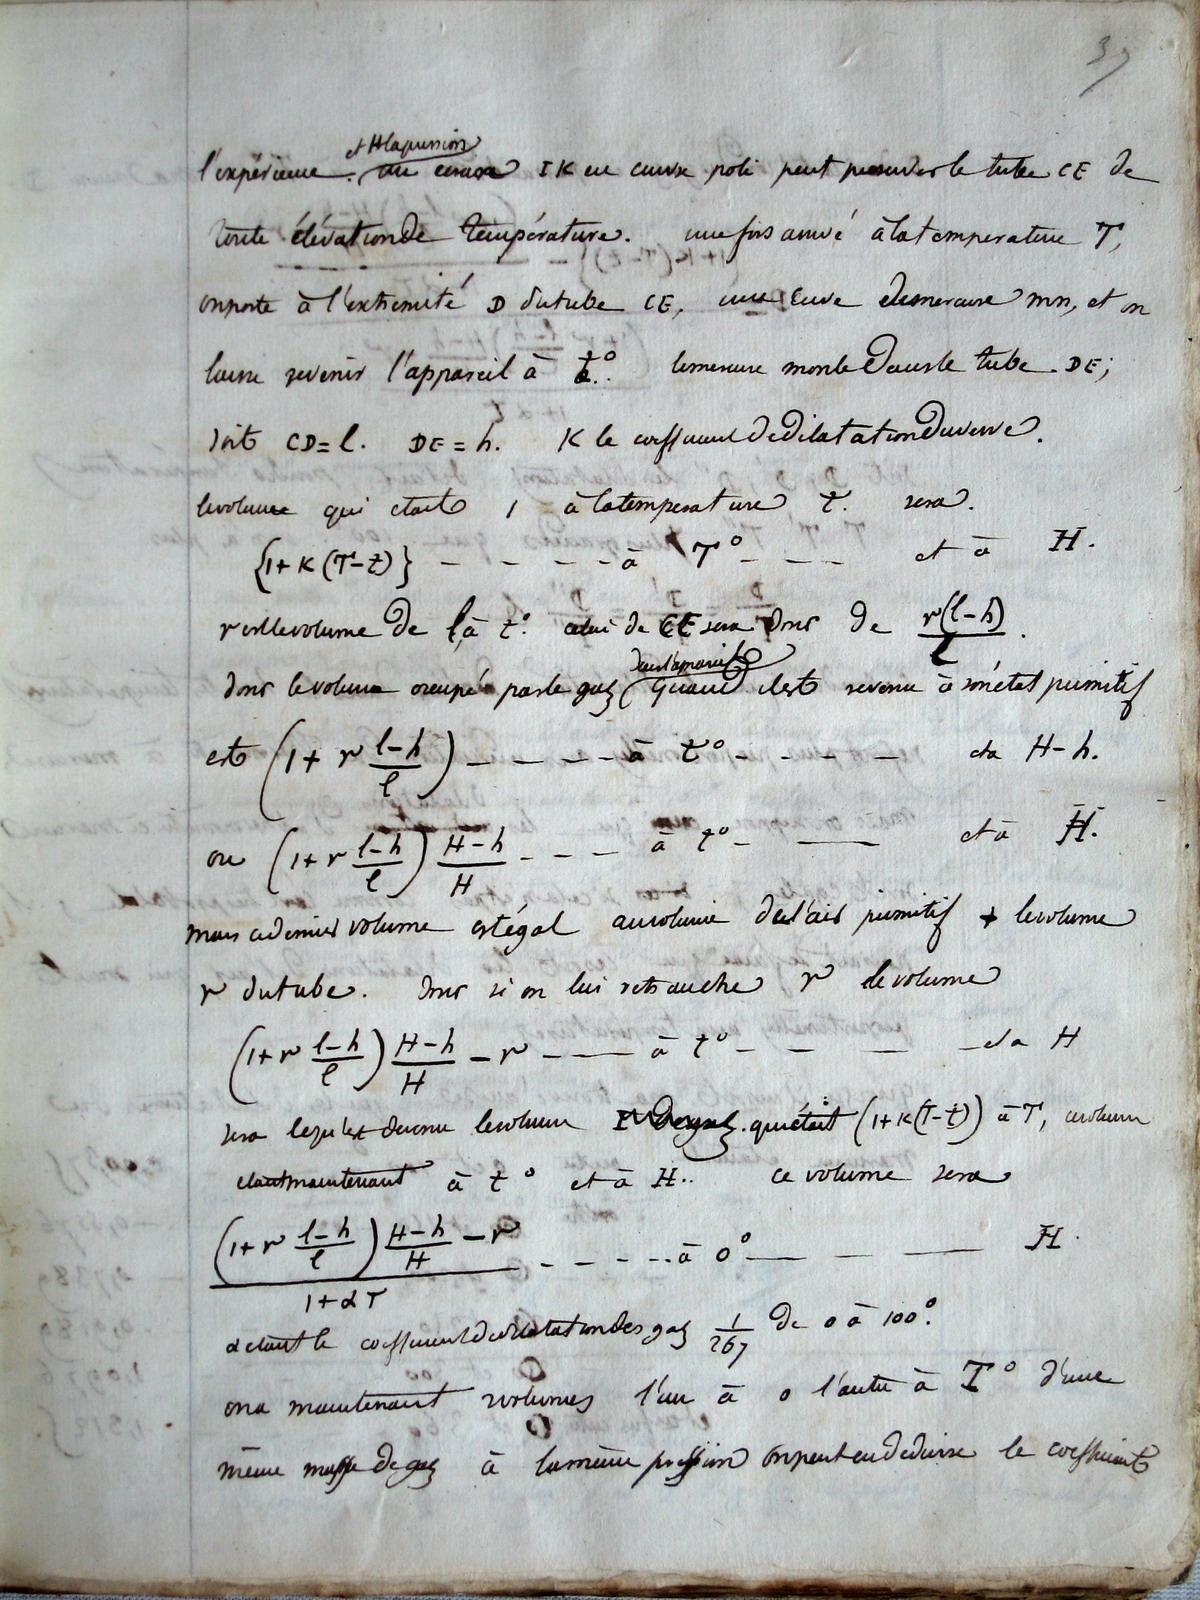 37
et H la pression
l'expérience. un ecran IK en cuivre poli peut preserver le tube CE de
toute élévation de température. une fois arrivé à la temperature T,
on porte à l'extremité D du tube CE, une cuve de mercure mn, et on
laisse revenir l'appareil à t°. le mercure monte dans le tube DE;
soit CD = l. DE = h. K le coefficient de dilatation du verre.
le volume qui etait 1 à la temperature t. sera.
{1+K(T-t)} - - - - - à T° - - - et à H.
r est le volume de l, à t°. celui de CE sera donc de r(l-h)/l.
dans l'appareil
donc le volume occupé par le gaz quand il est revenu à son état primitif
est (1 + r l-h/l) - - - - - à t° - - - - et à H-h.
ou (1 + r l-h/l) H-h/H - - - - à t° - — et à H.
mais ce dernier volume est égal au volume de l'air primitif + le volume
r du tube. donc si on lui retranche r le volume
(1+r l-h/l) H-h/H - r - — - à t° - - — - et à H
sera lequel est devenu le volume de gaz qui était (1+K(T-t)) à T, ce volume
étant maintenant à t° et à H.. ce volume sera
(1+r l-h/l) H-h/H - r / 1+αT - - - - à 0° — - — H.
α etant le coefficient de dilatation des gaz 1/267 de 0 à 100°.
on a maintenant 2 volumes l'un à 0 l'autre à T° d'une
même masse de gaz à la même pression on peut en deduire le coefficient